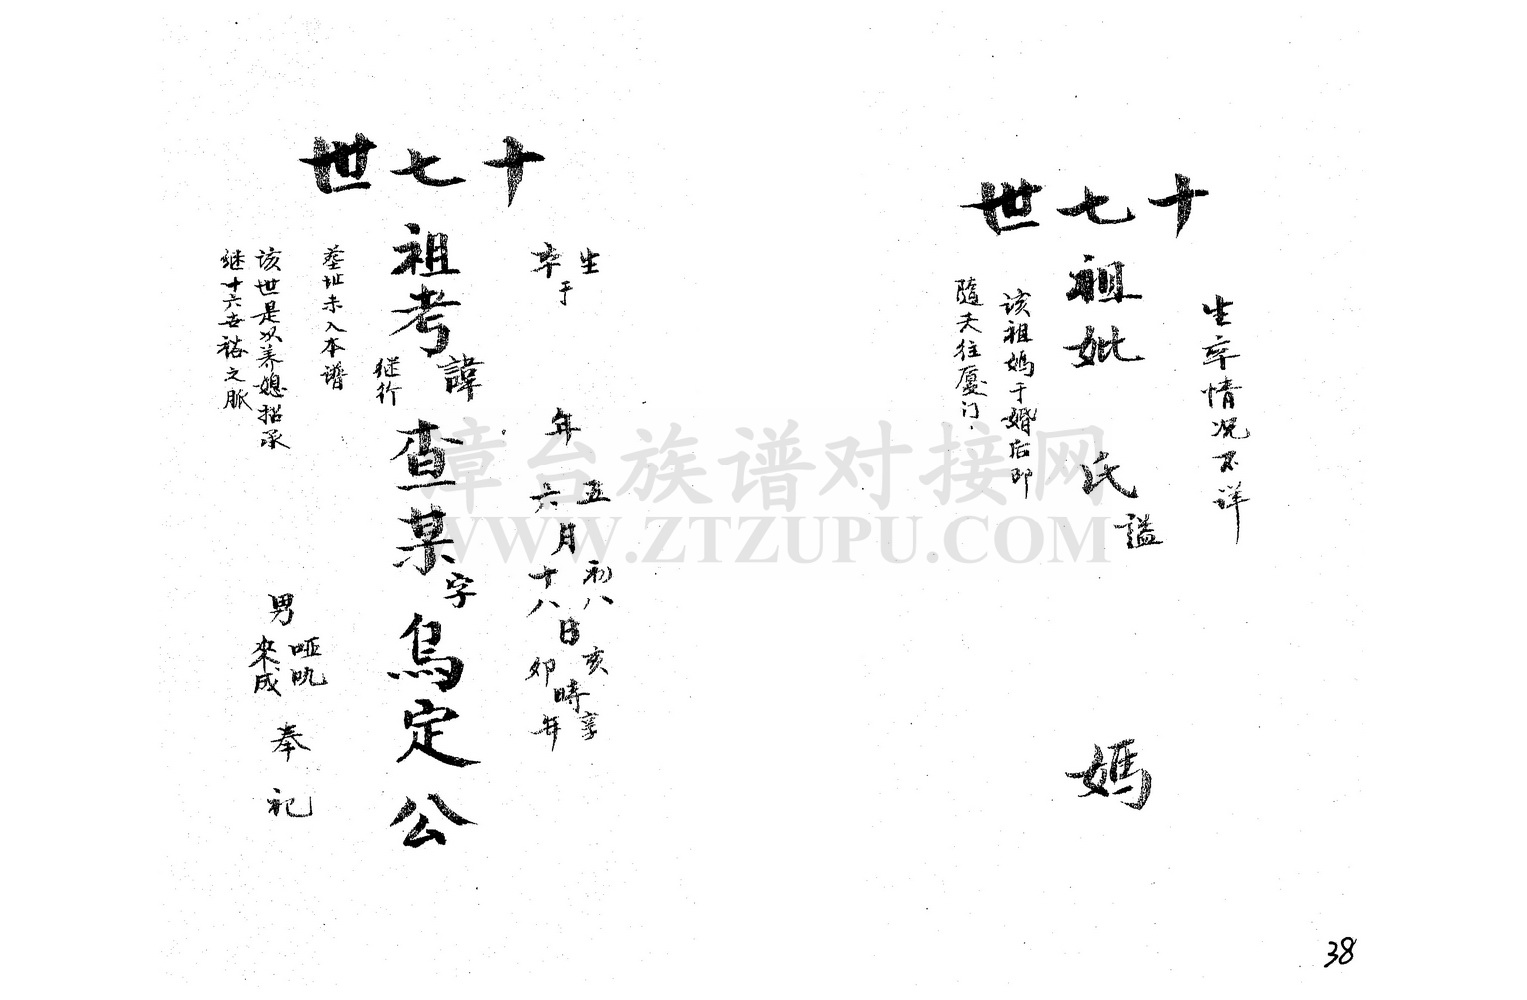 十七世
生卒情况不详
祖妣 氏 謚 媽
该祖妈于婚后即
隨夫往厦门.
十七世
生 年 五月初八日亥時 享
卒于 年 六月十八日卯時 年
祖考諱查某字烏定公
继行
墓址未入本谱
该世是以养媳招承
继十六世裕之脉
男
哑
來成
奉祀
漳台族谱对接网
WWW.ZTZUPU.COM
38